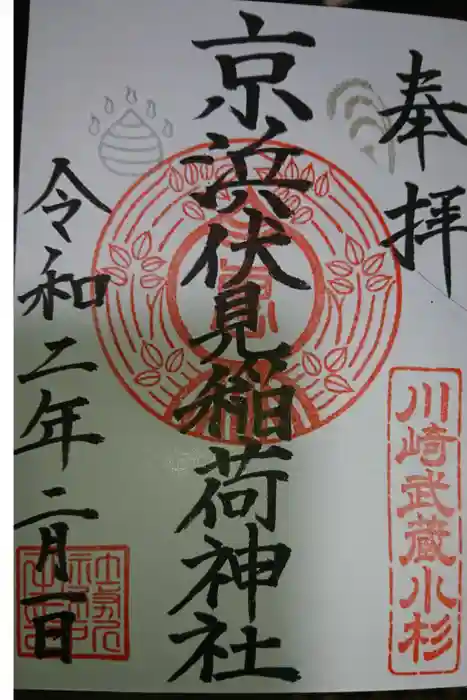 奉拝
川崎武蔵小杉
京浜伏見稲荷神社
令和二年二月一日